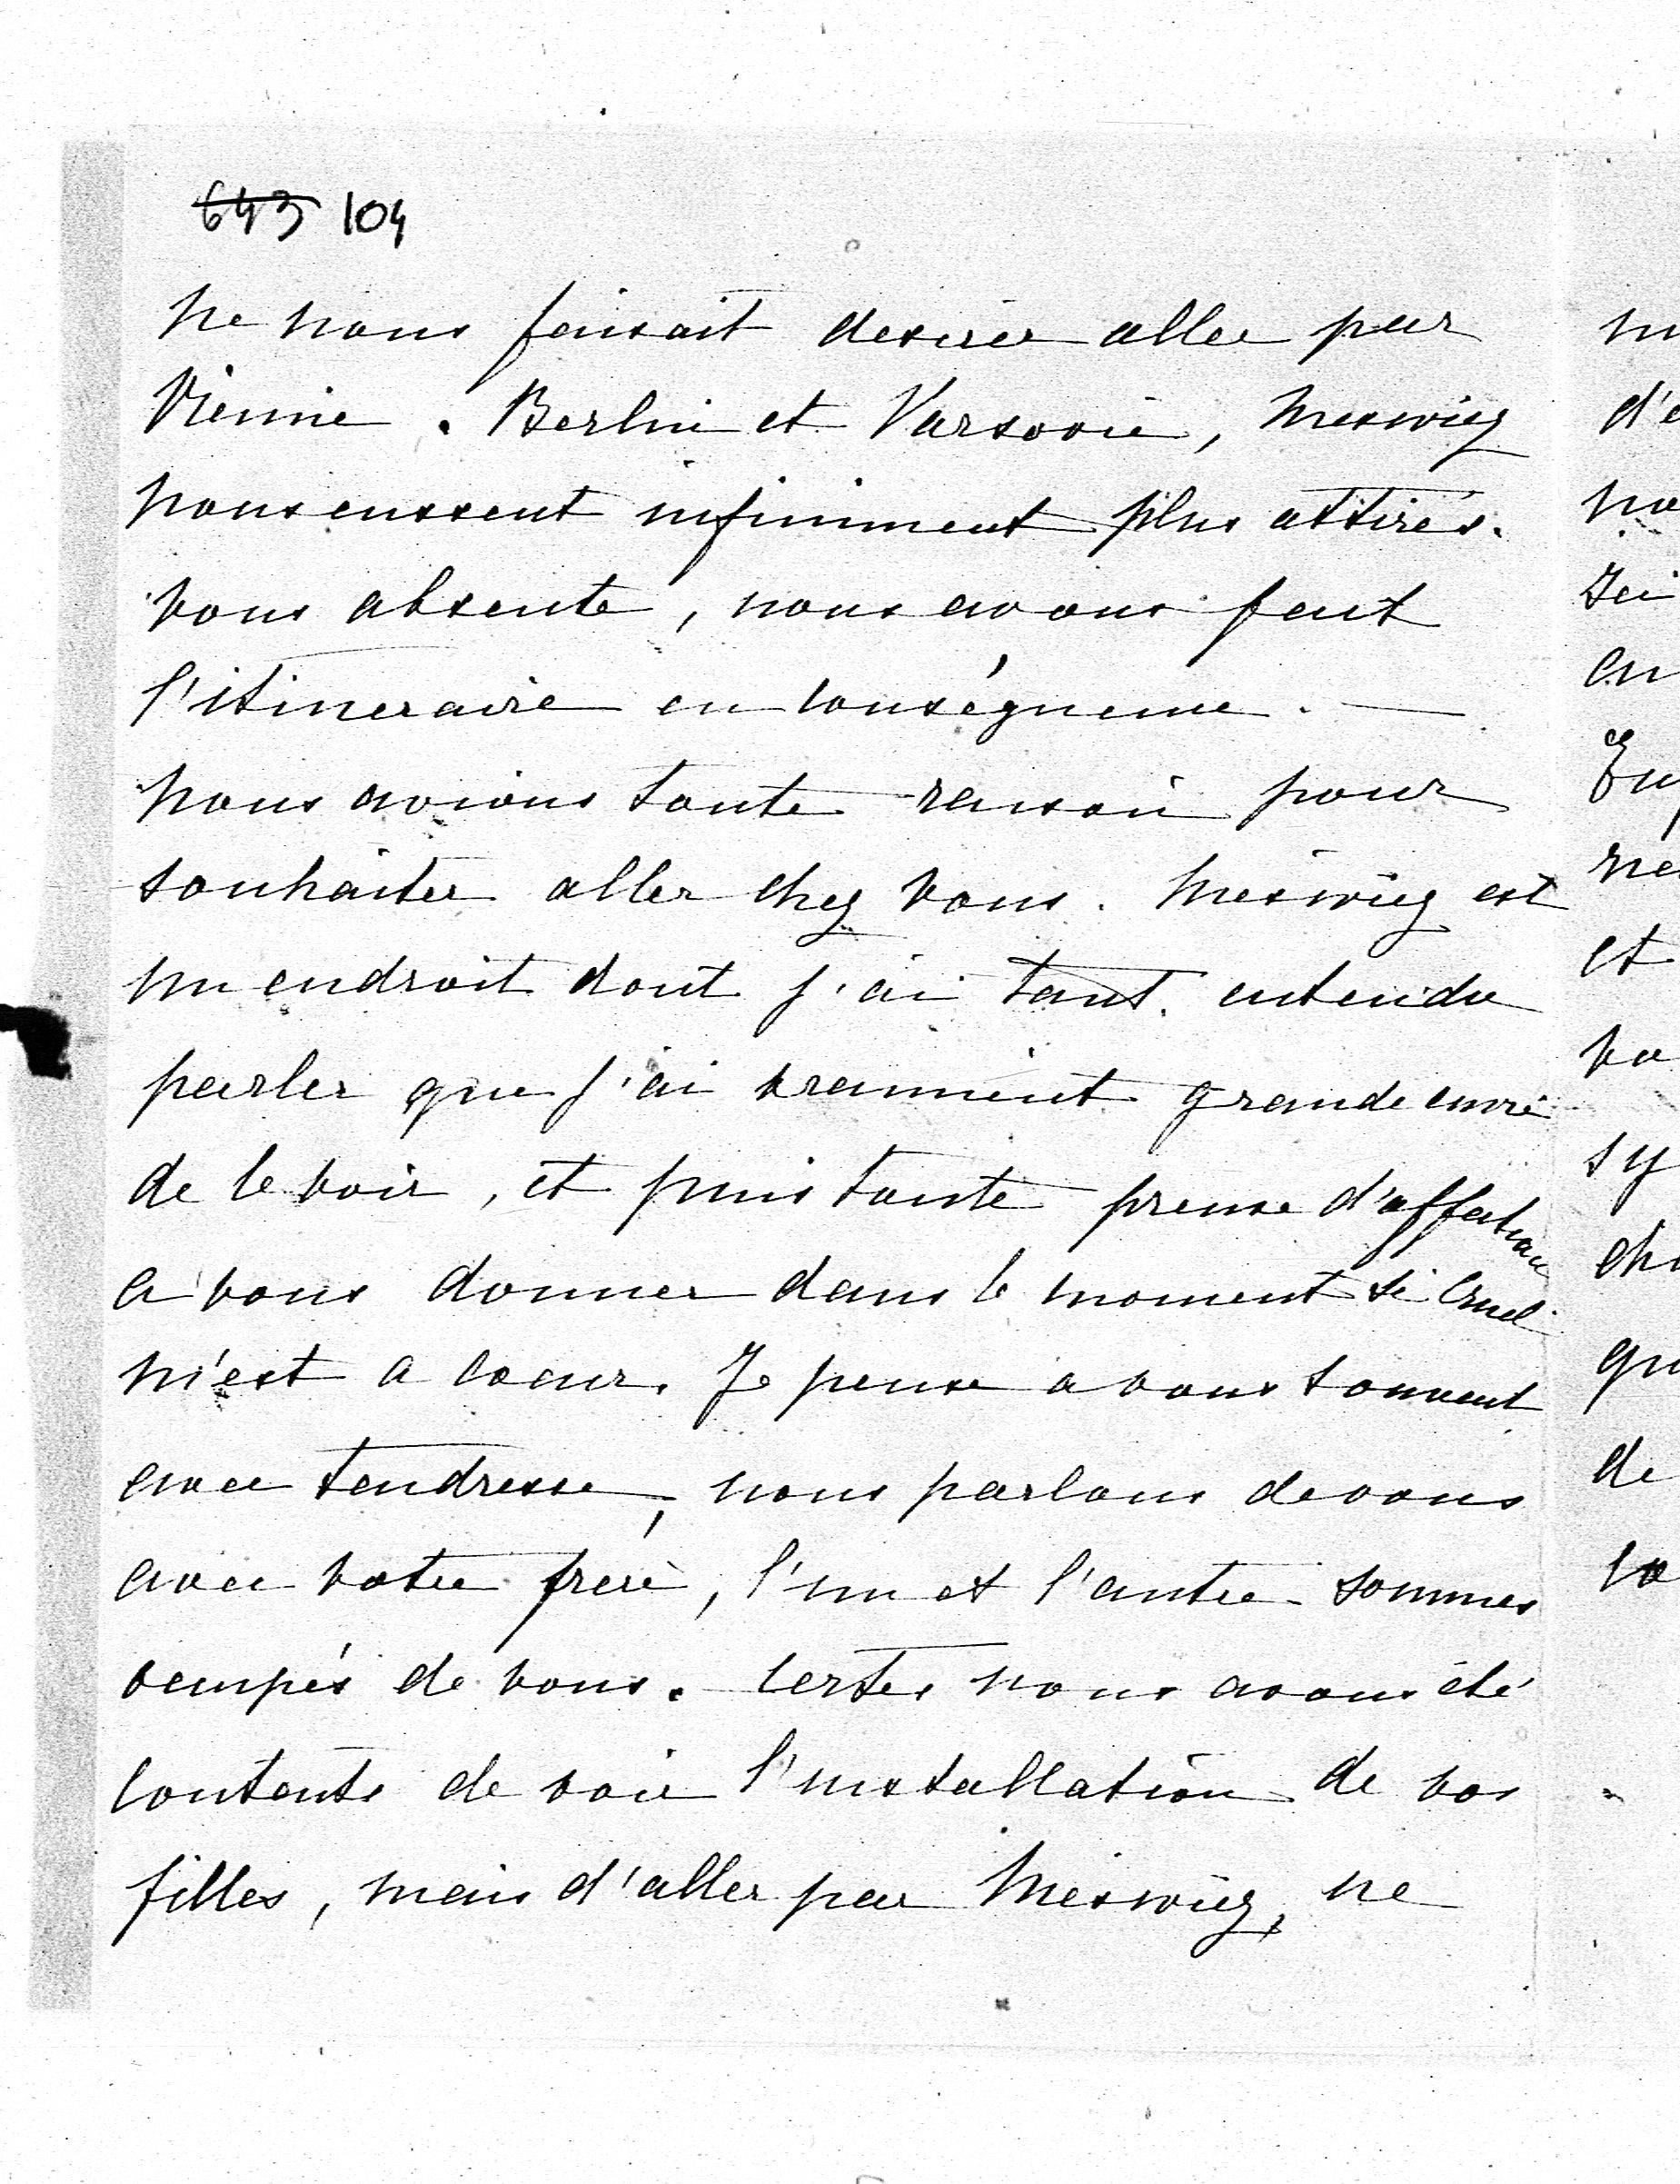 643 104
ne nous faisait desirer aller par
Vienne. Berlin et Varsovie, Meswiez
nous eussent infiniment plus attirés.
Vous absente, nous avons fait
l'itineraire en conséquence. —
Nous avions toute raison pour
souhaiter aller chez vous. Meswiez est
un endroit dont j'ai tant entendu
parler que j'ai vraiment grande envie
de le voir, et puis toute preuve d'affection
a vous donner dans le moment si cruel
m'est a coeur. Je pense a vous souvent
avec tendresse, nous parlons de vous
avec votre frere, l'un et l'autre sommes
occupés de vous. Certes nous avons été
contents de voir l'installation de vos
filles, mais d'aller par Meswiez, ne
m
d'e
no
en
ne
et
vo
sy
che
qu
de